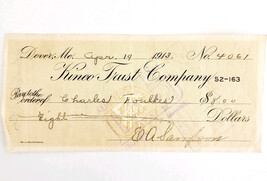 Dover, Me. Apr. 19 1913. No. 4061
Kinco Trust Company 52-163
Pay to the order of Charles Foulkes $8.00
Eight Dollars
E A Sampson